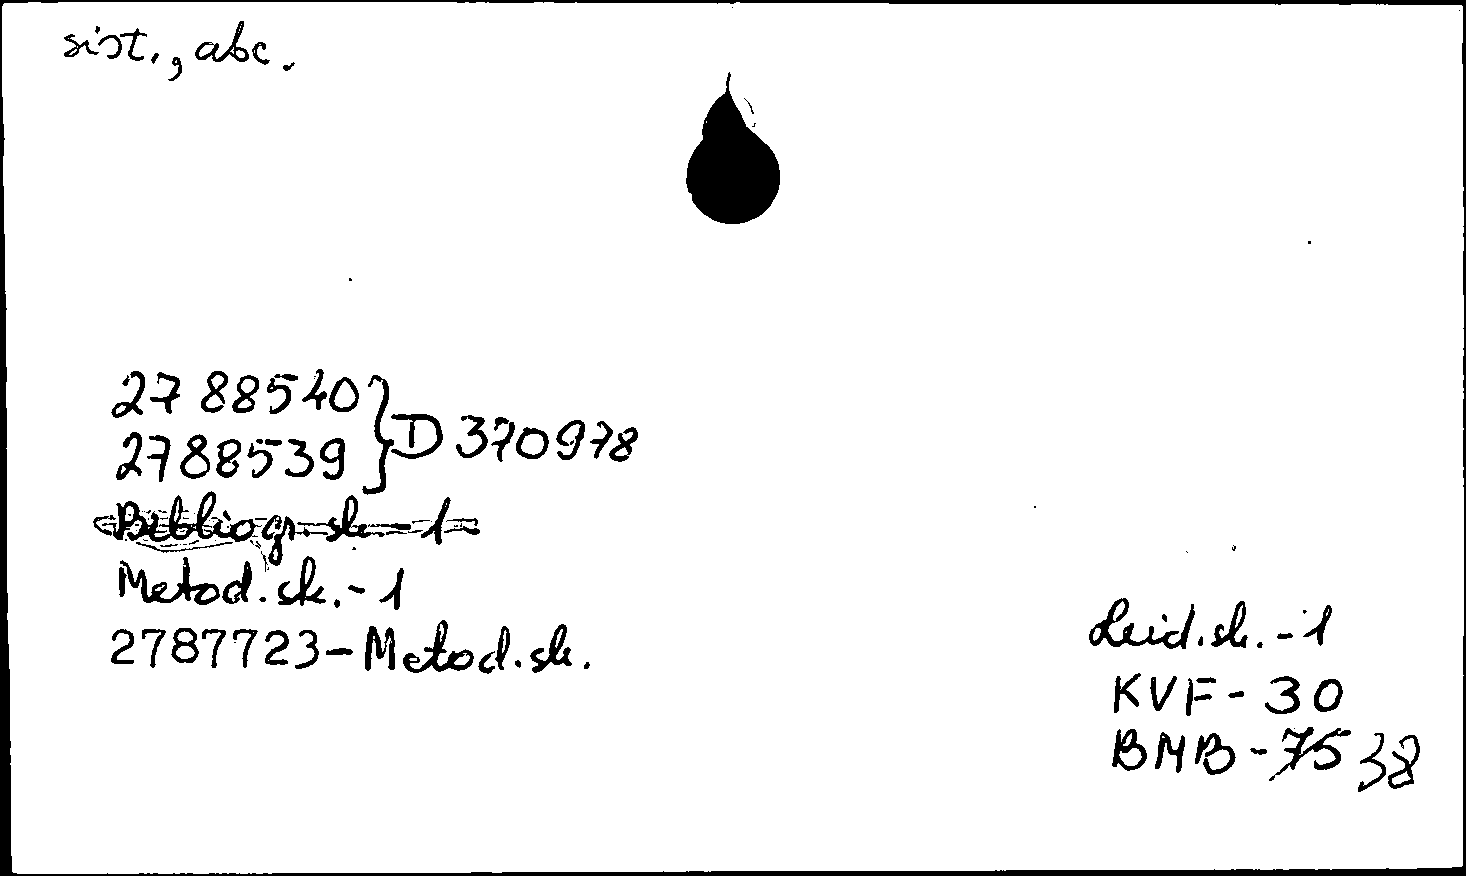 sist., abc.
27 88540
2788539 } D 370978
Bibliogr. sk. - 1
Metod. sk. - 1
2787723 - Metod. sk.
Leid. sk. - 1
KVF - 30
BMB - 75 38